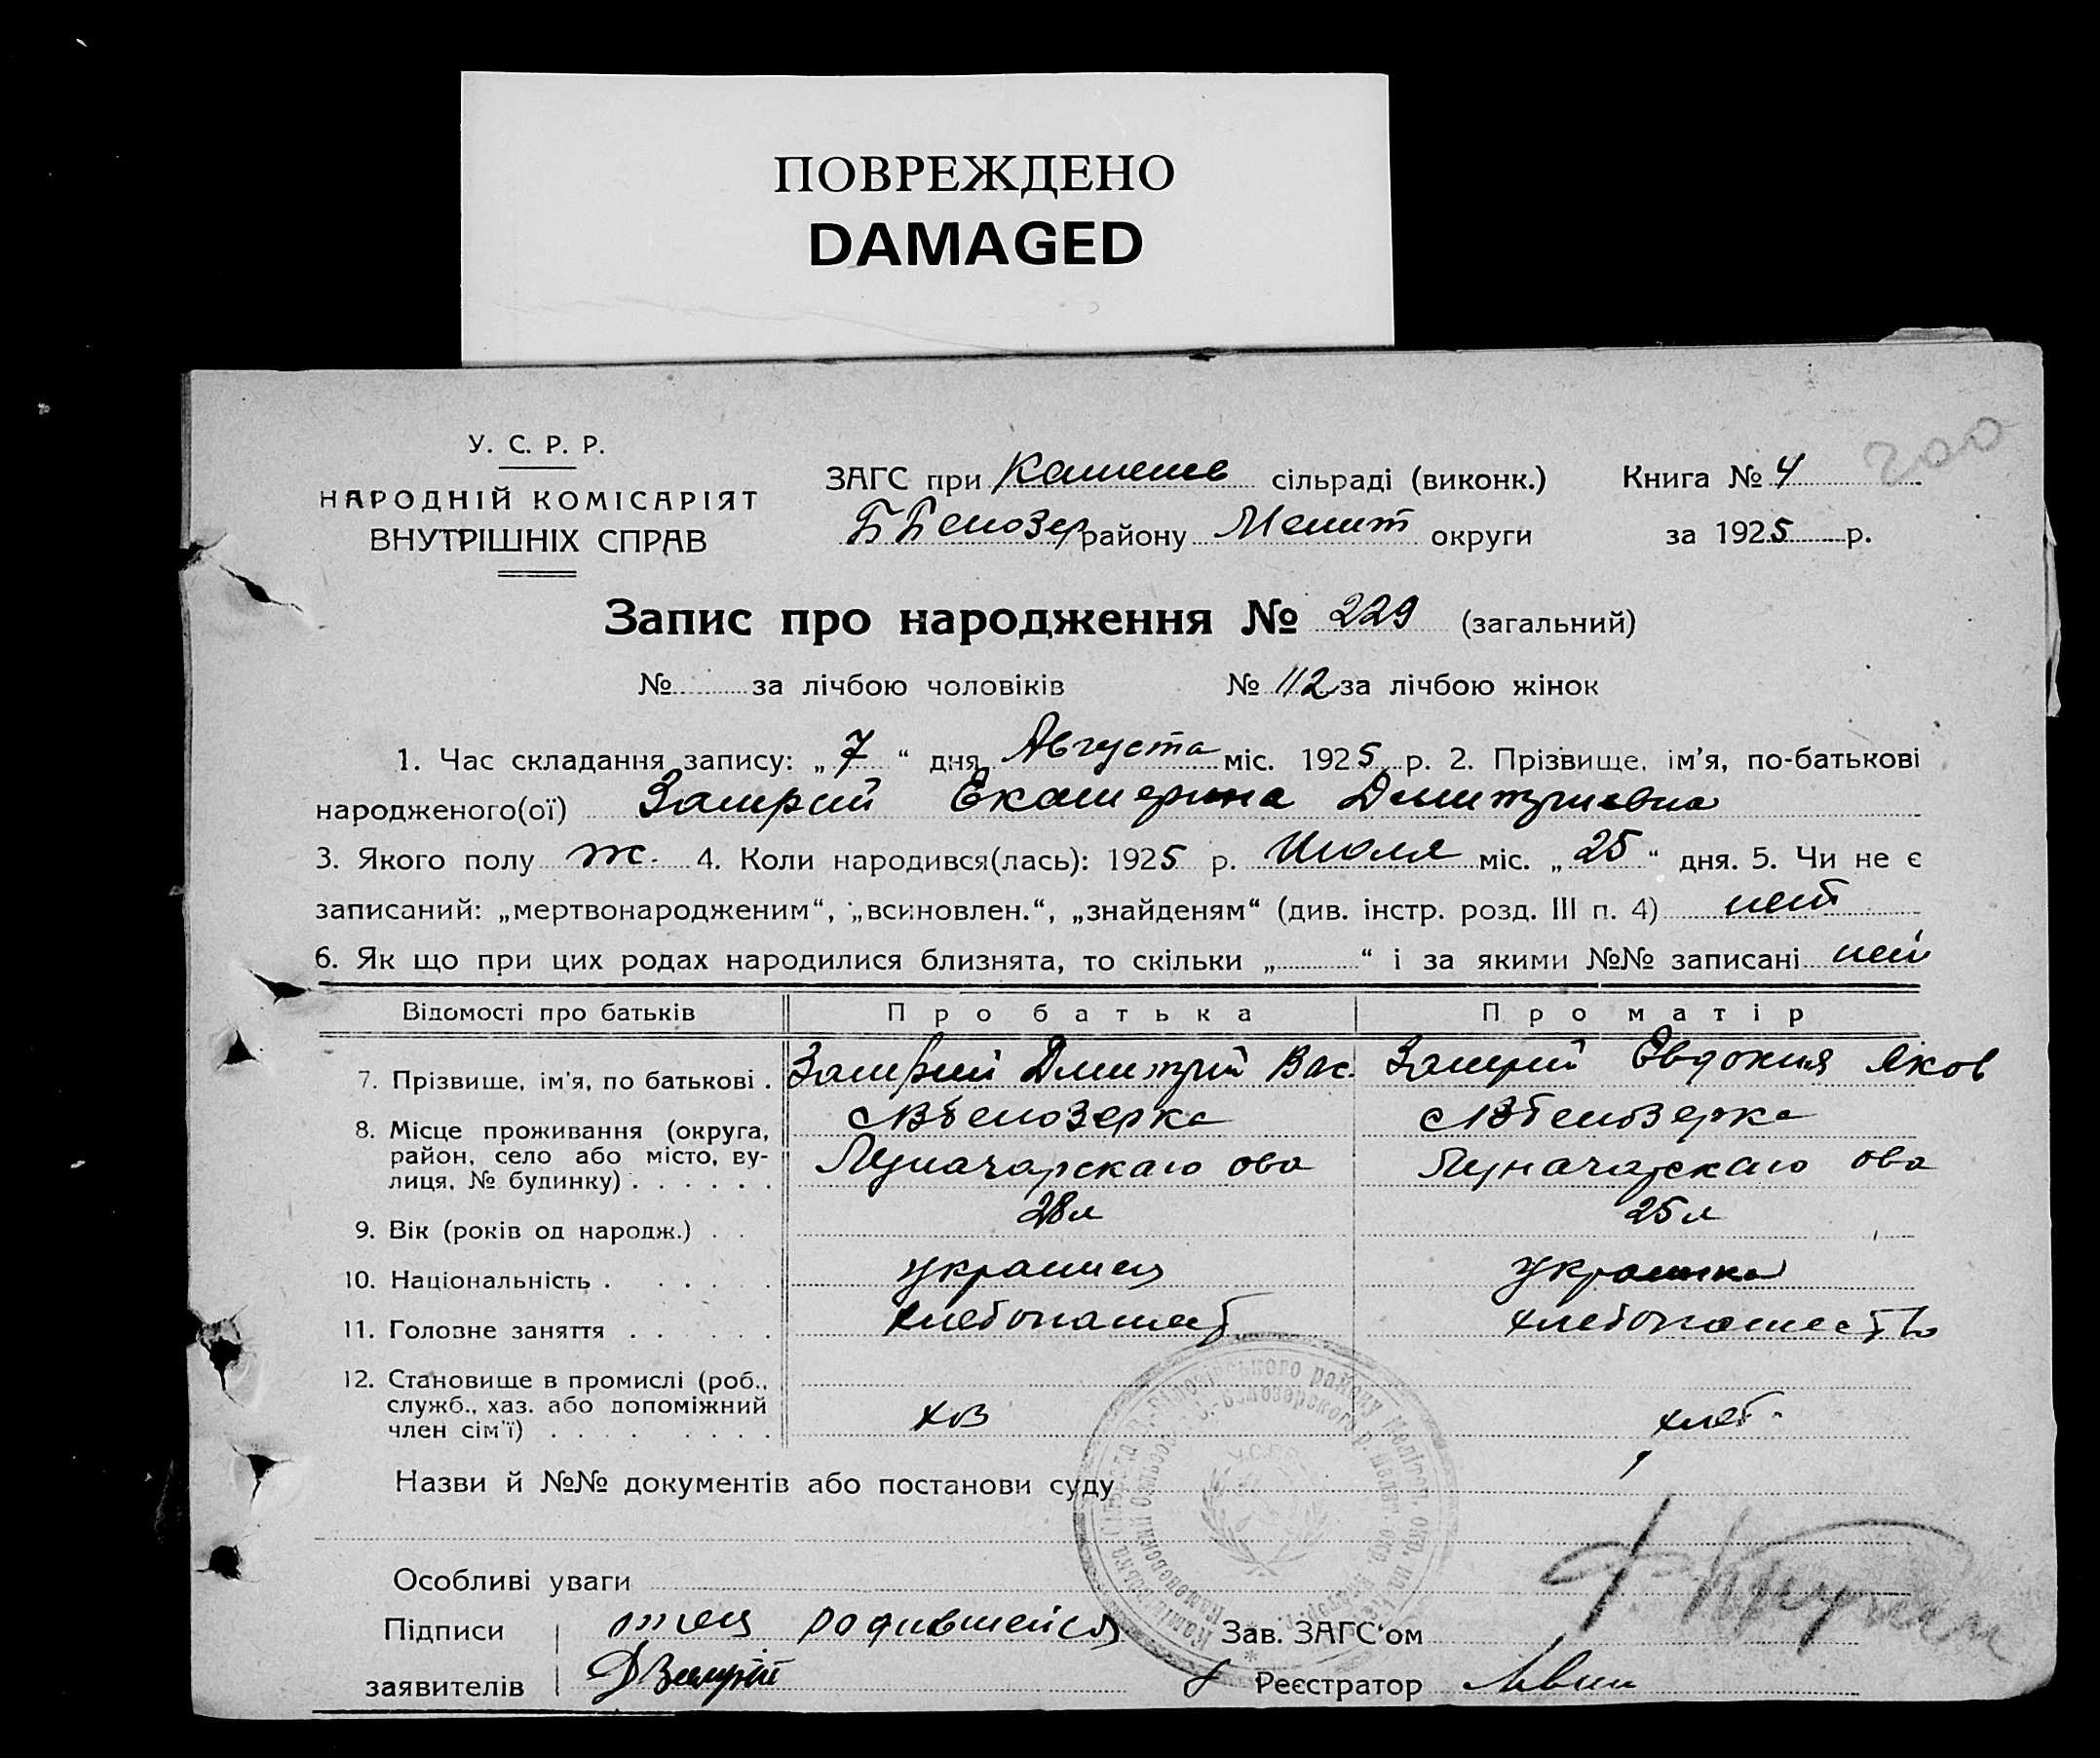 ПОВРЕЖДЕНО
DAMAGED
У. С. Р. Р.
НАРОДНІЙ КОМІСАРІЯТ
ВНУТРІШНІХ СПРАВ
ЗАГС при Каменев сільраді (виконк.)
Б Белозер району Мелит округи
Книга № 4
200
за 1925 р.
Запис про народження № 229 (загальний)
№ за лічбою чоловіків № 112 за лічбою жінок
1. Час складання запису: „7“ дня Августа міс. 1925 р. 2. Прізвище, ім'я, по-батькові
народженого(ої) Замрий Екатерина Дмитриевна
3. Якого полу ж. 4. Коли народився(лась): 1925 р. Июля міс. „25“ дня. 5. Чи не є
записаний: „мертвонародженим“, „всиновлен.“, „знайденям“ (див. інстр. розд. III п. 4) нет
6. Як що при цих родах народилися близнята, то скільки „ “ і за якими №№ записані нет
Відомості про батьків Про батька Про матір
7. Прізвище, ім'я, по батькові . Замрий Дмитрий Вас. Замрий Евдокия Яков
8. Місце проживання (округа, район, село або місто, вулиця, № будинку) . . . . . .
Белозерка Белозерка
Луначарскаго ова Луначарскаго ова
9. Вік (років од народж.) . . 28 л 25 л
10. Національність . . . . . украинец украинка
11. Головне заняття . . . . . хлебопашест хлебопашество
12. Становище в промислі (роб., служб., хаз. або допоміжний член сім'ї) . . . . . . . .
хоз хлеб.
Назви й №№ документів або постанови суду
Особливі уваги
Підписи отец родившейся Зав. ЗАГС'ом
заявителів ДЗамрій Реєстратор
У.С.Р.Р.